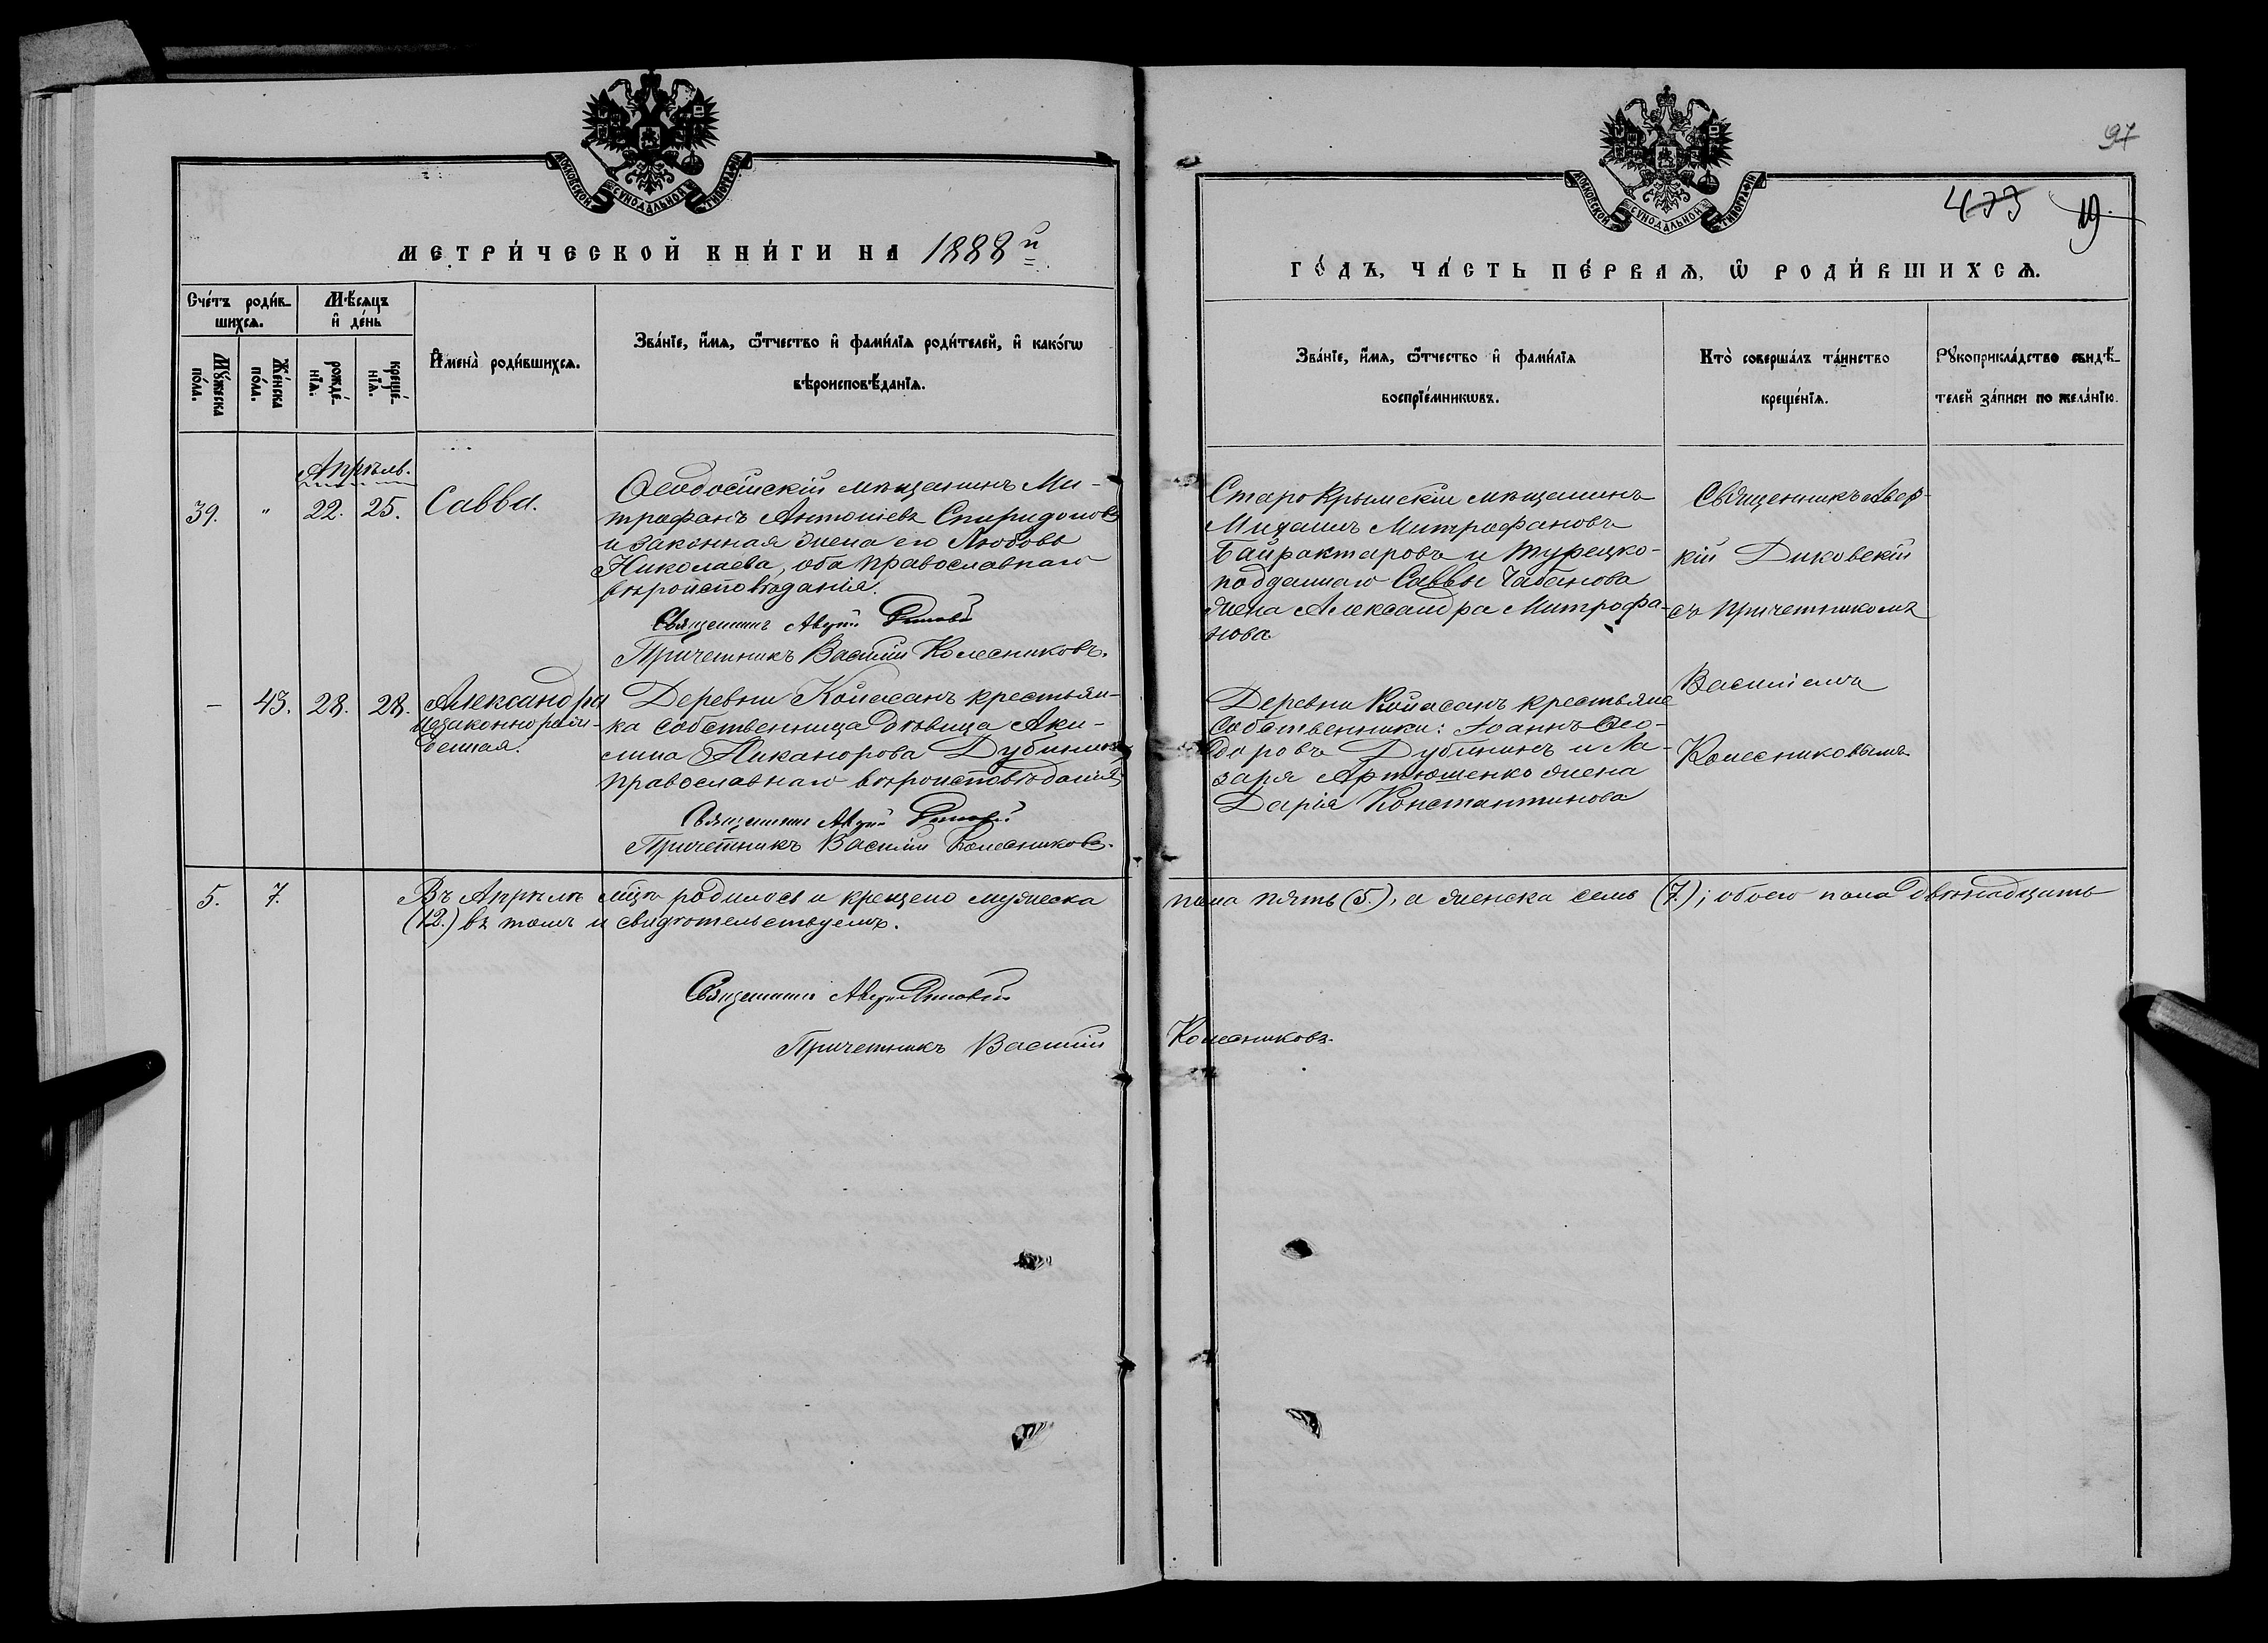 МОСКОВСКОЙ СѴНОДАЛЬНОЙ ТИПОГРАФІИ
МЕТРИ́ЧЕСКОЙ КНИ́ГИ НА 1888й
Сче́тъ роди́в-
шихсѧ.
Мѣ́сѧцъ
и҆ де́нь
Мꙋ́жеска
по́ла.
Же́нска
по́ла.
рожде́-
нїѧ.
креще́-
нїѧ.
И҆мена̀ роди́вшихсѧ.
Зва́нїе, и҆́мѧ, ѻ҆́тчество и҆ фами́лїѧ роди́телей, и҆ како́гѡ
вѣроисповѣ́данїѧ.
Апрѣль.
39.
"
22.
25.
Савва.
Ѳеодосійскій мѣщанинъ Ми-
трофанъ Антоніевъ Спиридоновъ
и законная жена его Любовь
Николаева, оба православнаго
вѣроисповѣданія.
Священникъ Аверкій Диковскій
Причетникъ Василій Колесниковъ.
-
43.
28.
28.
Александра
незаконнорож-
денная.
Деревни Койасанъ крестьян-
ка собственница дѣвица Аки-
лина Никанорова Дубинина
православнаго вѣроисповѣданія
Священникъ Аверкій Диковскій
Причетникъ Василій Колесниковъ.
5.
7.
Въ Апрѣлѣ мѣцѣ родилось и крещено мужеска
(12.) въ томъ и свидѣтельствуемъ.
Священникъ Аверкій Диковскій
Причетникъ Василій
97
МОСКОВСКОЙ СѴНОДАЛЬНОЙ ТИПОГРАФІИ
473 19.
ГО́ДЪ, ЧА́СТЬ ПЕ́РВАѦ, Ѡ҆ РОДИ́ВШИХСѦ.
Зва́нїе, и҆́мѧ, ѻ҆́тчество и҆ фами́лїѧ
воспрїе́мникѡвъ.
Кто̀ соверша́лъ та́инство
креще́нїѧ.
Рꙋкоприкла́дство свидѣ́-
телей за́писи по жела́нїю.
Старокрымскій мѣщанинъ
Михаилъ Митрофановъ
Байрактаровъ и Турецко-
подданнаго Саввы Чабанова
жена Александра Митрофа-
нова
Священникъ Авер-
кій Диковскій
съ причетникомъ
Василіемъ
Колесниковымъ
Деревни Койасанъ крестьяне
собственники: Іоаннъ Ѳео-
доровъ Дубининъ и Ла-
заря Артюшенко жена
Дарія Константинова
пола пять (5.), а женска семь (7.); обоего пола двѣнадцать
Колесниковъ.